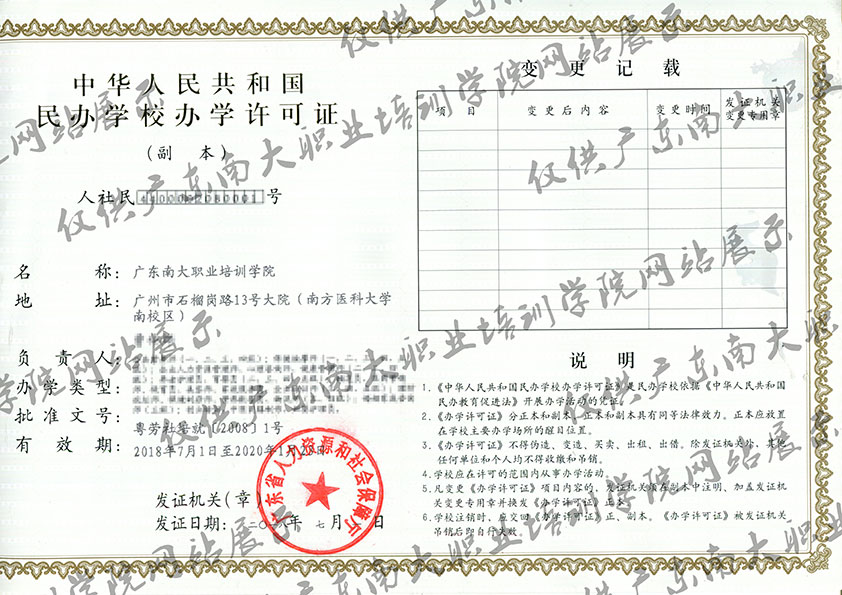 中华人民共和国
民办学校办学许可证
（副 本）
人社民 号
名 称：广东南大职业培训学院
地 址：广州市石榴岗路13号大院（南方医科大学
南校区）
负 责 人：
办 学 类 型：
批 准 文 号：粤劳社培就〔2008〕1号
有 效 期：2018年7月1日至2020年1月2日
发证机关（章）
发证日期： 年 七 月 日
广东省人力资源和社会保障厅
变 更 记 载
项 目 变更后内容 变更时间 发证机关
变更专用章
说 明
1.《中华人民共和国民办学校办学许可证》是民办学校依据《中华人民共和国
民办教育促进法》开展办学活动的凭证。
2.《办学许可证》分正本和副本，正本和副本具有同等法律效力。正本应放置
在学校主要办学场所的醒目位置。
3.《办学许可证》不得伪造、变造、买卖、出租、出借。除发证机关外，其他
任何单位和个人均不得收缴和吊销。
4.学校应在许可的范围内从事办学活动。
5.凡变更《办学许可证》项目内容的，发证机关须在副本中注明、加盖发证机
关变更专用章并换发《办学许可证》正本。
6.学校注销时，应交回《办学许可证》正、副本。《办学许可证》被发证机关
吊销后即自行失效
仅供广东南大职业培训学院网站展示
仅供广东南大职业培训学院网站展示
仅供广东南大职业培训学院网站展示